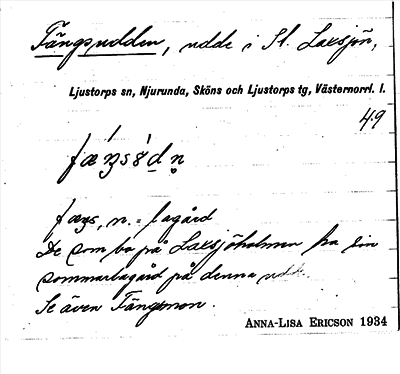 Fängsudden, udde i St. Laxsjön,
Ljustorps sn, Njurunda, Sköns och Ljustorps tg, Västernorrl. l.
49
fäŋs, n. = lagård
De som bo på Laxsjöholmen ha sin
sommarlagård på denna udde.
Se även Fängmon.
ANNA-LISA ERICSON 1934